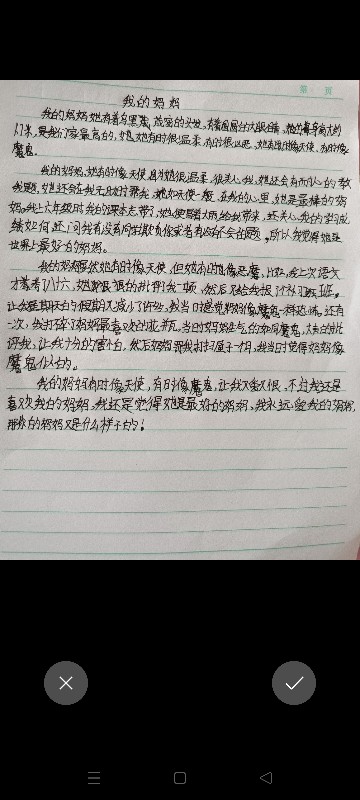 第 页
我的妈妈
我的妈妈她有着乌黑 茂密的头发,有着圆圆的大眼睛,她
们家,是我们家最高的,她有时很温柔,有时很凶恶,她有时像天使,有时像
魔鬼。
我的妈妈,她有时像天使,因为她很温柔,很关心我,她还会耐心的教
我题,她还会在我无助时帮我,她如天使一般,在我的心里,她是最棒的妈
妈,我上六年级时我的课本忘带了,她便冒着大雨给我带来,还关心我的学习成
绩如何,还问我有没有同学欺负你或者有没有不会的题,所以我觉得她是
世界上最好的妈妈。
我的妈妈虽然她有时像天使,但她有时也像恶魔,比如,我上次语文
才考了八六,她便狠狠的批评我一顿,然后又给我报了补习班,
让我星期天的假期又减少了许多,我当时感觉妈妈像魔鬼一样恐怖,还有
一次,我打碎了妈妈最喜欢的花瓶,当时妈妈生气的如同魔鬼,大声的批
评我,让我十分的害怕,然后妈妈罚我打扫屋子一个月,我当时觉得妈妈像
魔鬼似的。
我的妈妈有时像天使,有时像魔鬼,让我又爱又恨,不过我还是
喜欢我的妈妈,我还是觉得她是最好的妈妈,我永远爱我的妈妈,
你的妈妈又是什么样子的!